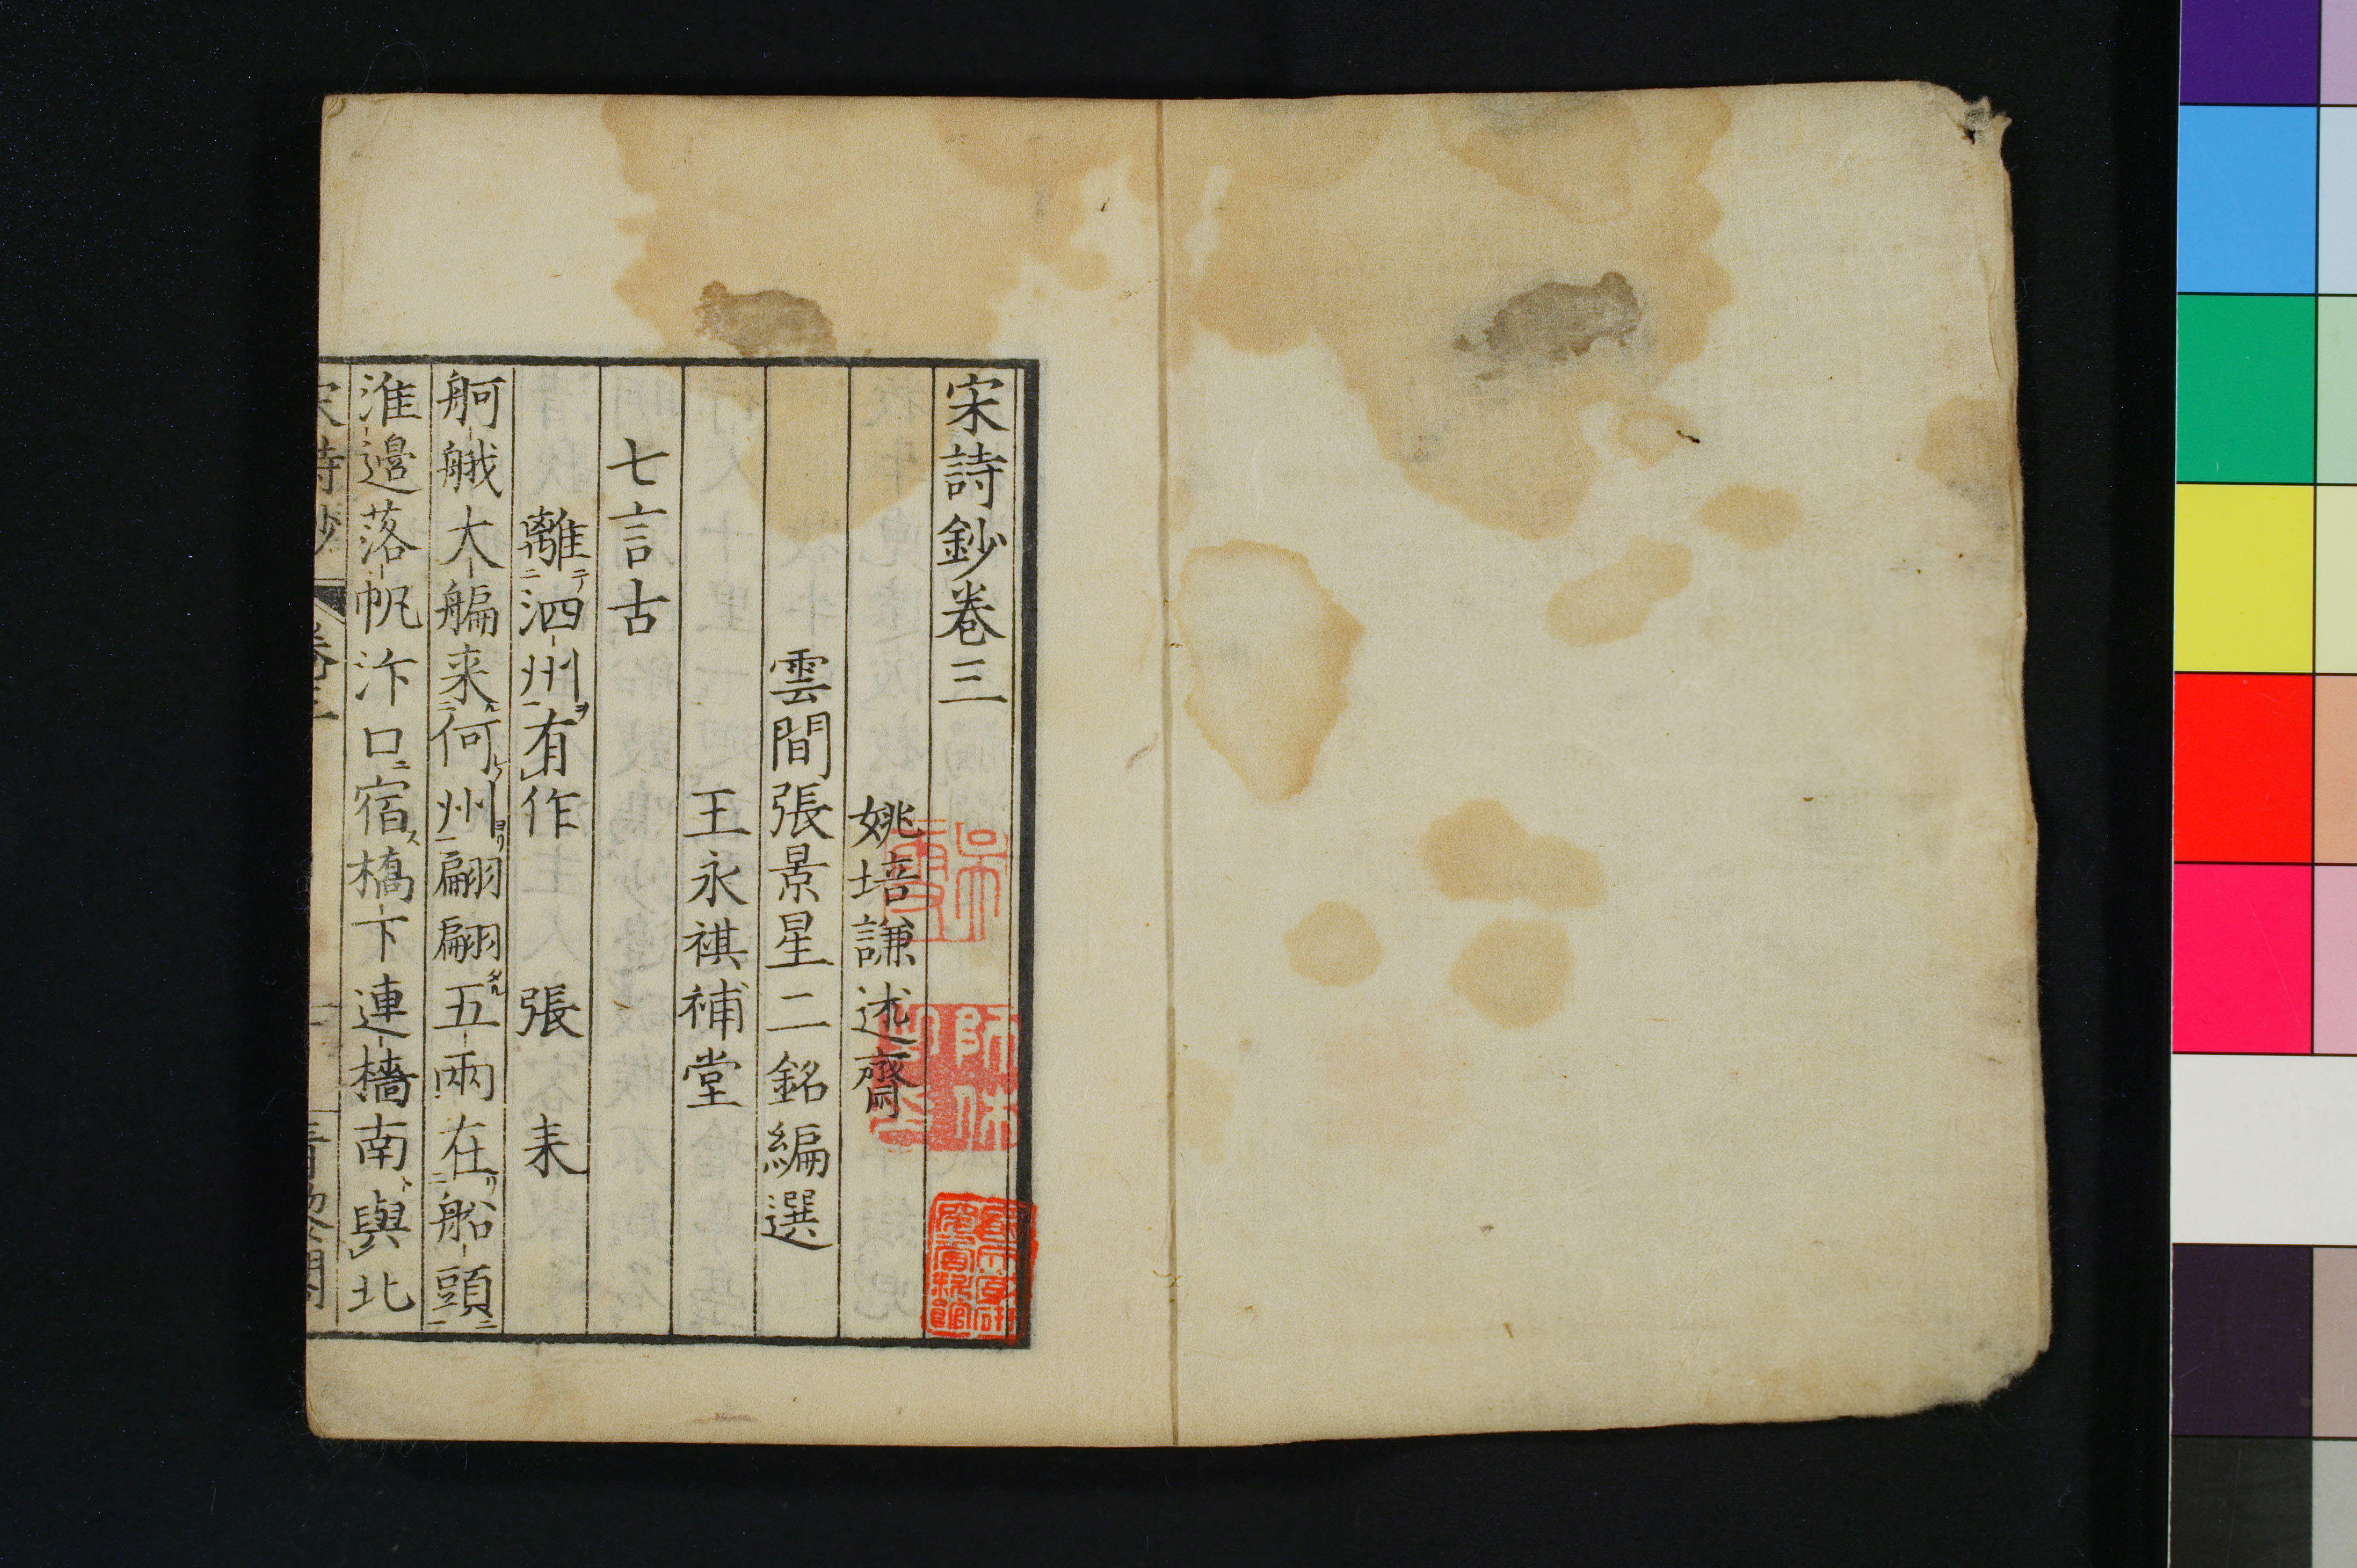 宋詩鈔卷三
姚培謙述齋
雲間張景星二銘編選
王永祺補堂
七言古
離泗州有作　張　耒
舸艤大艑来何州翩翩五兩在船頭
淮邉落帆汴口宿橋下連檣南與北
宋詩鈔　卷三